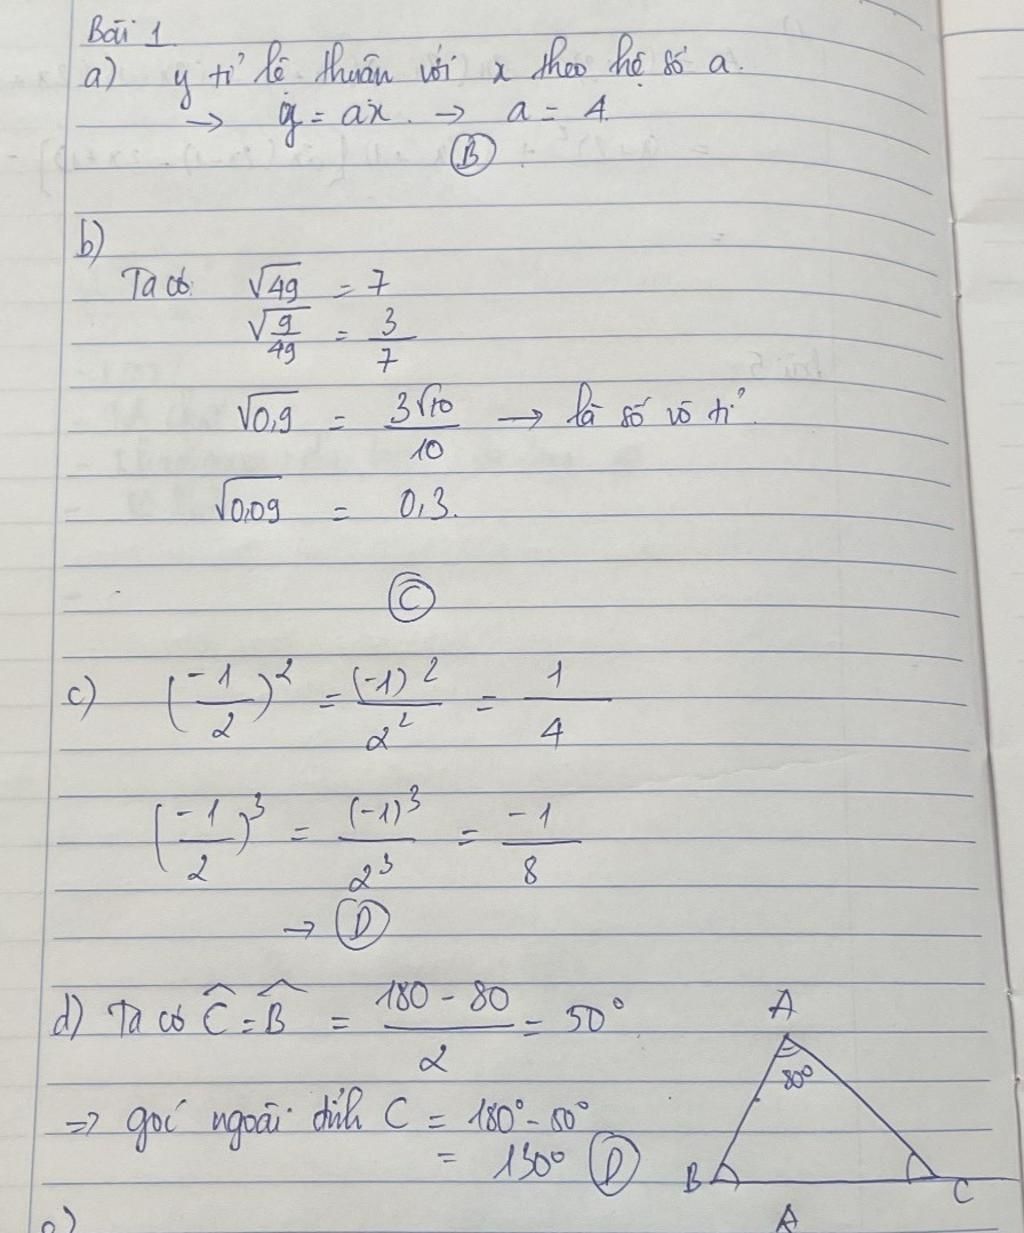 Bài 1
a) y tỉ lệ thuận với x theo hệ số a.
→ y = ax. → a = 4.
B
b)
Ta có: √49 = 7
√(9/49) = 3/7
√0,9 = 3√10/10 → là số vô tỉ.
√0,09 = 0,3.
C
c) (-1/2)² = (-1)²/2² = 1/4
(-1/2)³ = (-1)³/2³ = -1/8
→ D
d) Ta có Ĉ = B̂ = (180 - 80)/2 = 50°
⇒ góc ngoài đỉnh C = 180° - 50°
= 130° D
A
80°
B
C
e)
A